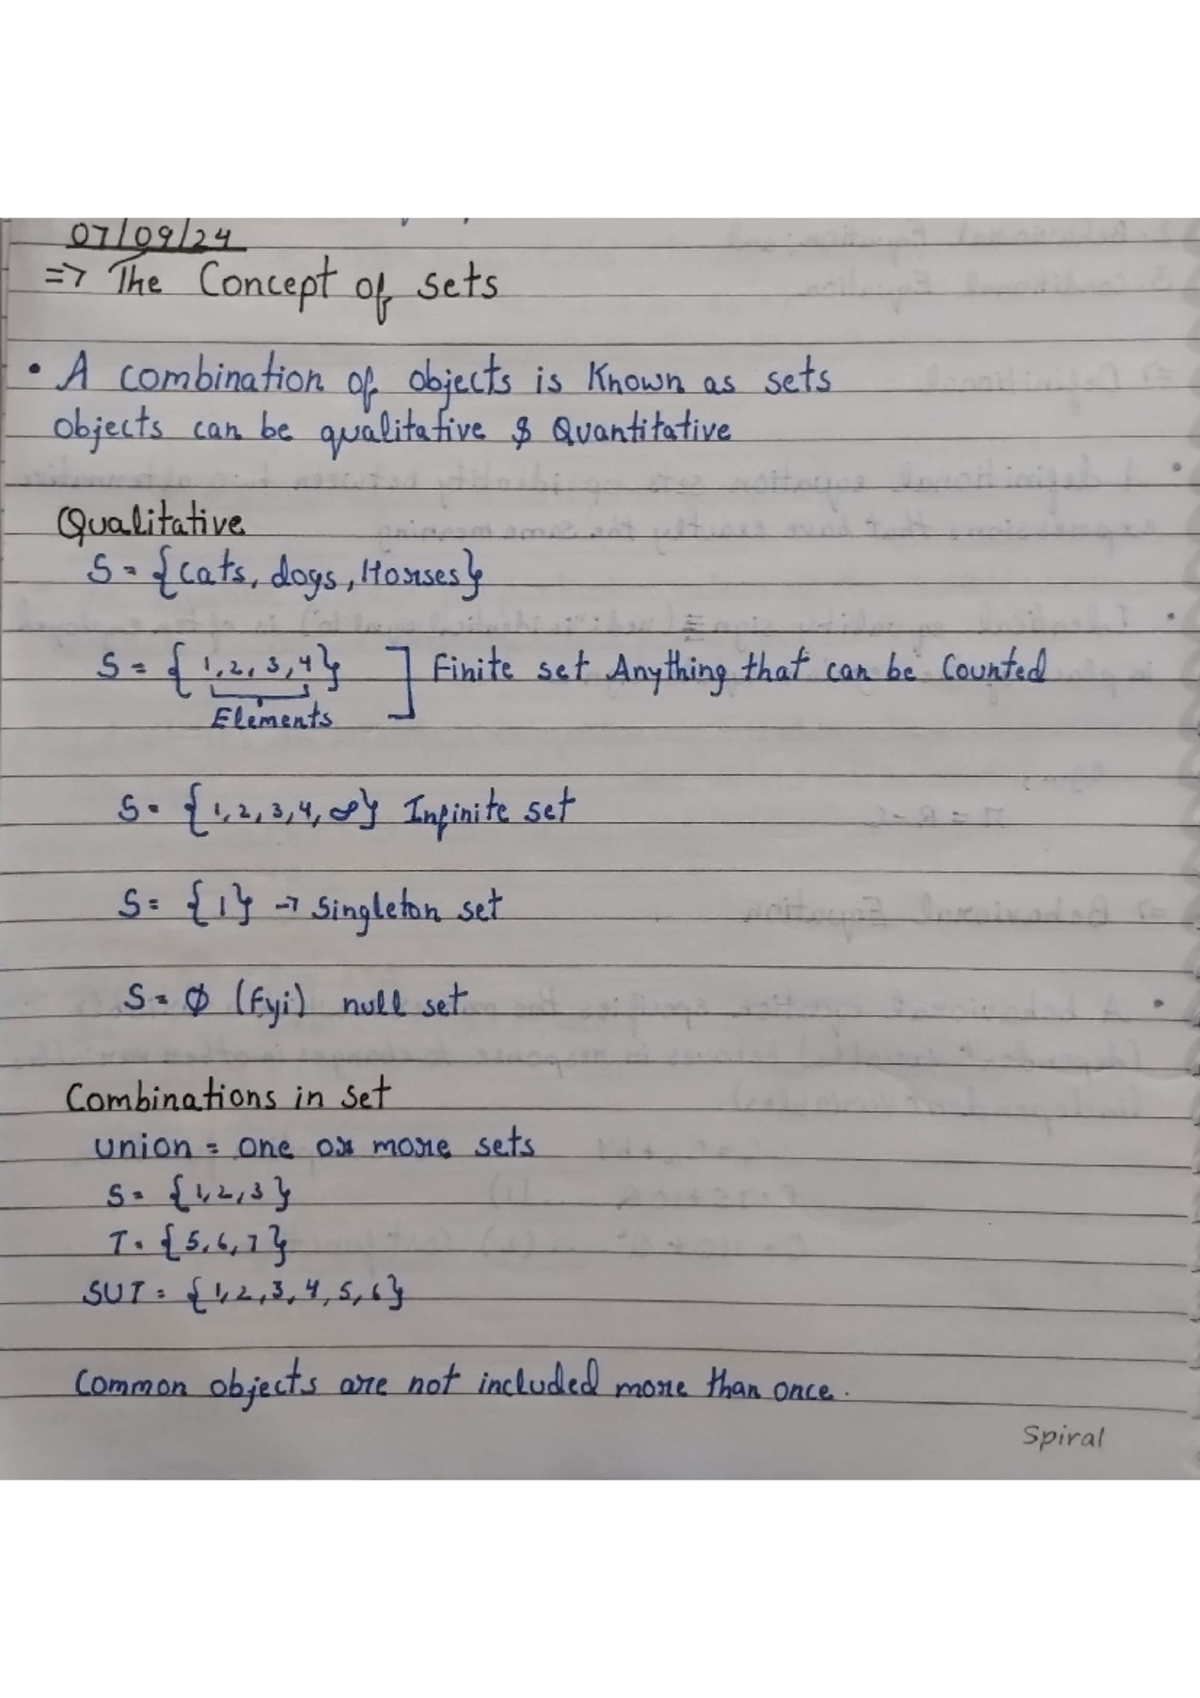 07/09/24
=> The Concept of sets
• A combination of objects is Known as sets
objects can be qualitative & Quantitative
Qualitative
S = {cats, dogs, Horses}
S = {1,2,3,4} ] Finite set Anything that can be Counted
Elements
S = {1,2,3,4,∞} Infinite set
S = {1} → Singleton set
S = Ø (Fyi) null set
Combinations in set
union = one or more sets
S = {1,2,3}
T = {5,6,7}
SUT = {1,2,3,4,5,6}
Common objects are not included more than once.
Spiral